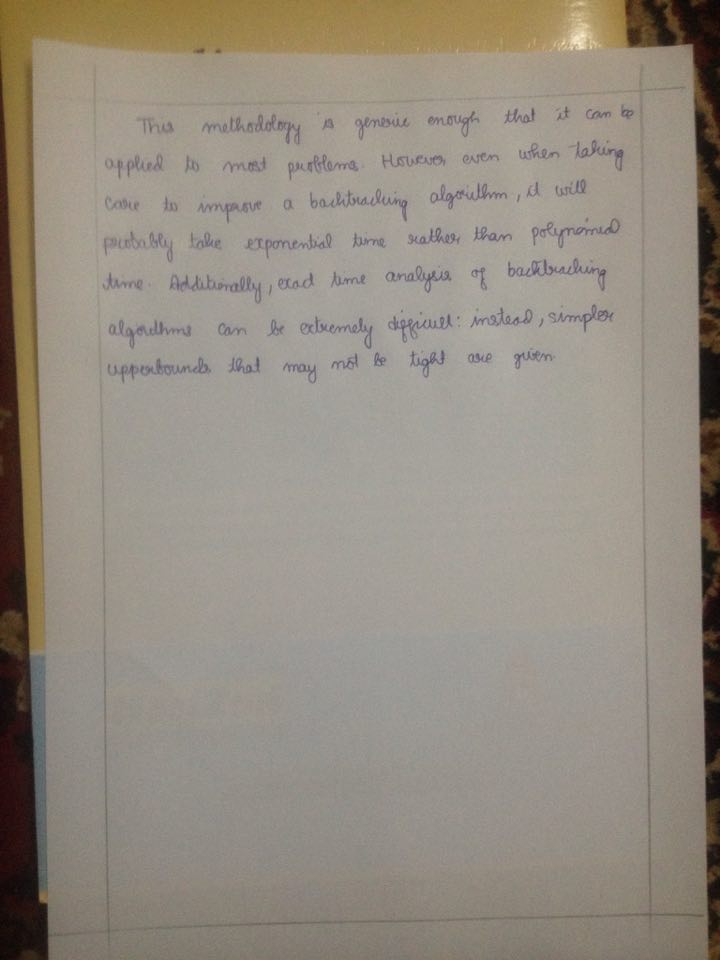 This methodology is generic enough that it can be
applied to most problems. However even when taking
care to improve a backtracking algorithm, it will
probably take exponential time rather than polynomial
time. Additionally, exact time analysis of backtracking
algorithms can be extremely difficult: instead, simpler
upperbounds that may not be tight are given.